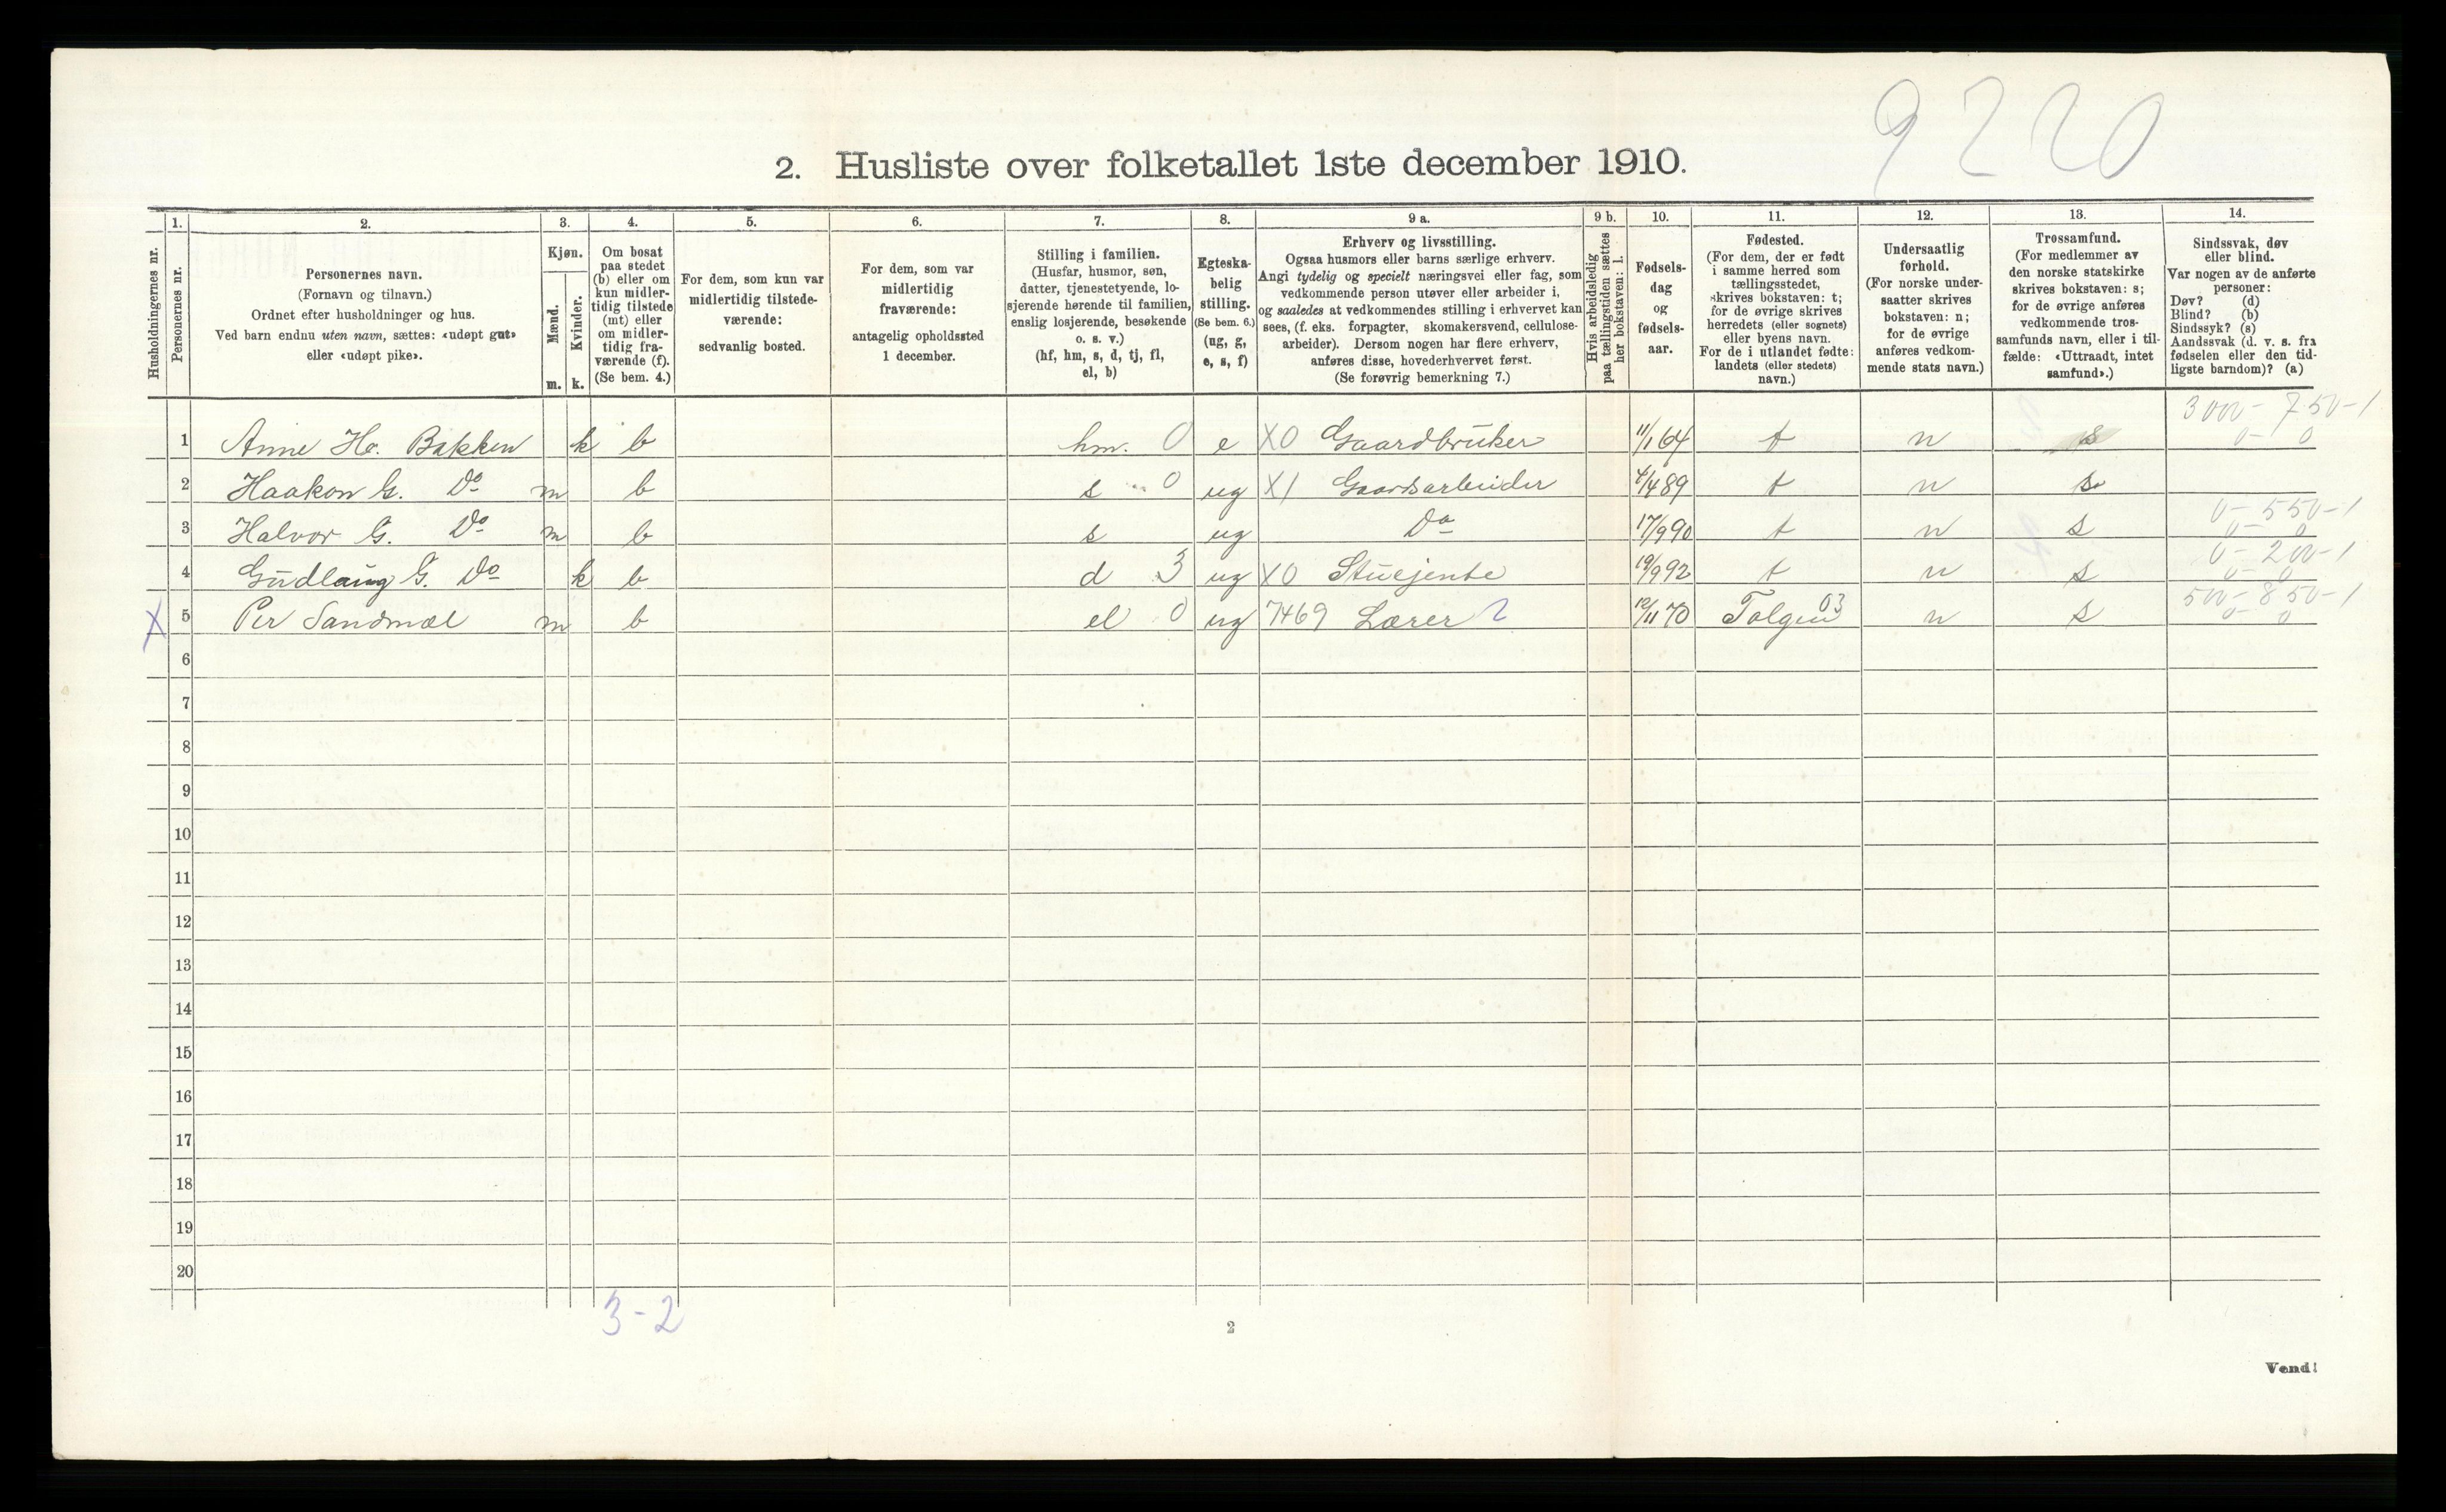 9220
2. Husliste over folketallet 1ste december 1910.
1. 2. 3. 4. 5. 6. 7. 8. 9 a. 9 b. 10. 11. 12. 13. 14.
Husholdningernes nr.
Personernes nr.
Personernes navn.
(Fornavn og tilnavn.)
Ordnet efter husholdninger og hus.
Ved barn endnu uten navn, sættes: «udøpt gut»
eller «udøpt pike».
Kjøn.
Mænd.
Kvinder.
m. k.
Om bosat
paa stedet
(b) eller om
kun midler-
tidig tilstede
(mt) eller
om midler-
tidig fra-
værende (f).
(Se bem. 4.)
For dem, som kun var
midlertidig tilstede-
værende:
sedvanlig bosted.
For dem, som var
midlertidig
fraværende:
antagelig opholdssted
1 december.
Stilling i familien.
(Husfar, husmor, søn,
datter, tjenestetyende, lo-
sjerende hørende til familien,
enslig losjerende, besøkende
o. s. v.)
(hf, hm, s, d, tj, fl,
el, b)
Egteska-
belig
stilling.
(Se bem. 6.)
(ug, g,
e, s, f)
Erhverv og livsstilling.
Ogsaa husmors eller barns særlige erhverv.
Angi tydelig og specielt næringsvei eller fag, som
vedkommende person utøver eller arbeider i,
og saaledes at vedkommendes stilling i erhvervet kan
sees, (f. eks. forpagter, skomakersvend, cellulose-
arbeider). Dersom nogen har flere erhverv,
anføres disse, hovederhvervet først.
(Se forøvrig bemerkning 7.)
Hvis arbeidsledig
paa tællingstiden sættes
her bokstaven: l.
Fødsels-
dag
og
fødsels-
aar.
Fødested.
(For dem, der er født
i samme herred som
tællingsstedet,
skrives bokstaven: t;
for de øvrige skrives
herredets (eller sognets)
eller byens navn.
For de i utlandet fødte:
landets (eller stedets)
navn.)
Undersaatlig
forhold.
(For norske under-
saatter skrives
bokstaven: n;
for de øvrige
anføres vedkom-
mende stats navn.)
Trossamfund.
(For medlemmer av
den norske statskirke
skrives bokstaven: s;
for de øvrige anføres
vedkommende tros-
samfunds navn, eller i til-
fælde: «Uttraadt, intet
samfund».)
Sindssvak, døv
eller blind.
Var nogen av de anførte
personer:
Døv? (d)
Blind? (b)
Sindssyk? (s)
Aandssvak (d. v. s. fra
fødselen eller den tid-
ligste barndom)? (a)
3000 - 750 - 1
1 Anne H. Bakken k b hm. 0 e X0 Gaardbruker 11/1 64 t n s 0 - 0
2 Haakon G. Do m b s 0 ug X1 Gaardsarbeider 4/4 89 t n s
0 - 550 - 1
3 Halvor G. Do m b s ug Do 17/9 90 t n s 0 - 0
0 - 200 - 1
4 Gudlaug G. Do k b d 3 ug X0 Stuejente 19/9 92 t n s 0 - 0
500 - 850 - 1
X 5 Per Sandmæl m b el 0 ug 7469 Lærer 2 12/11 70 Tolgen 03 n s 0 - 0
6
7
8
9
10
11
12
13
14
15
16
17
18
19
20
3 - 2
2
Vend!